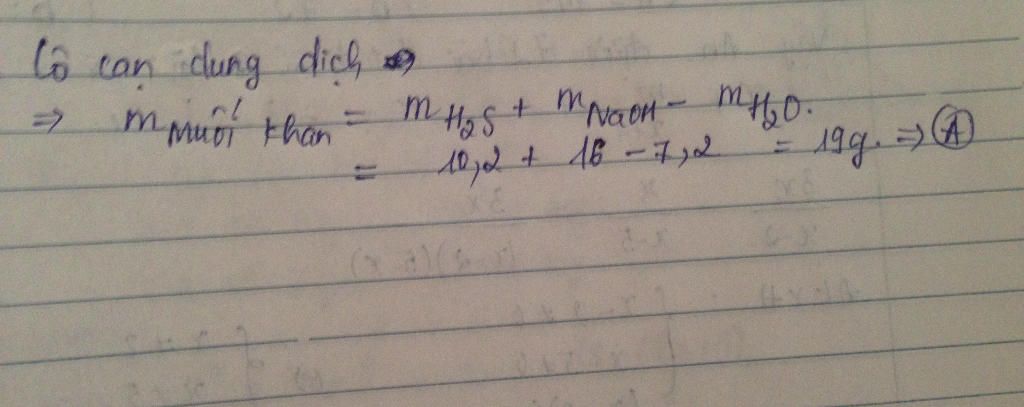 Cô cạn dung dịch
⇒ m Muối khan = m H₂S + m NaOH - m H₂O.
= 10,2 + 16 - 7,2 = 19g. ⇒ Ⓐ